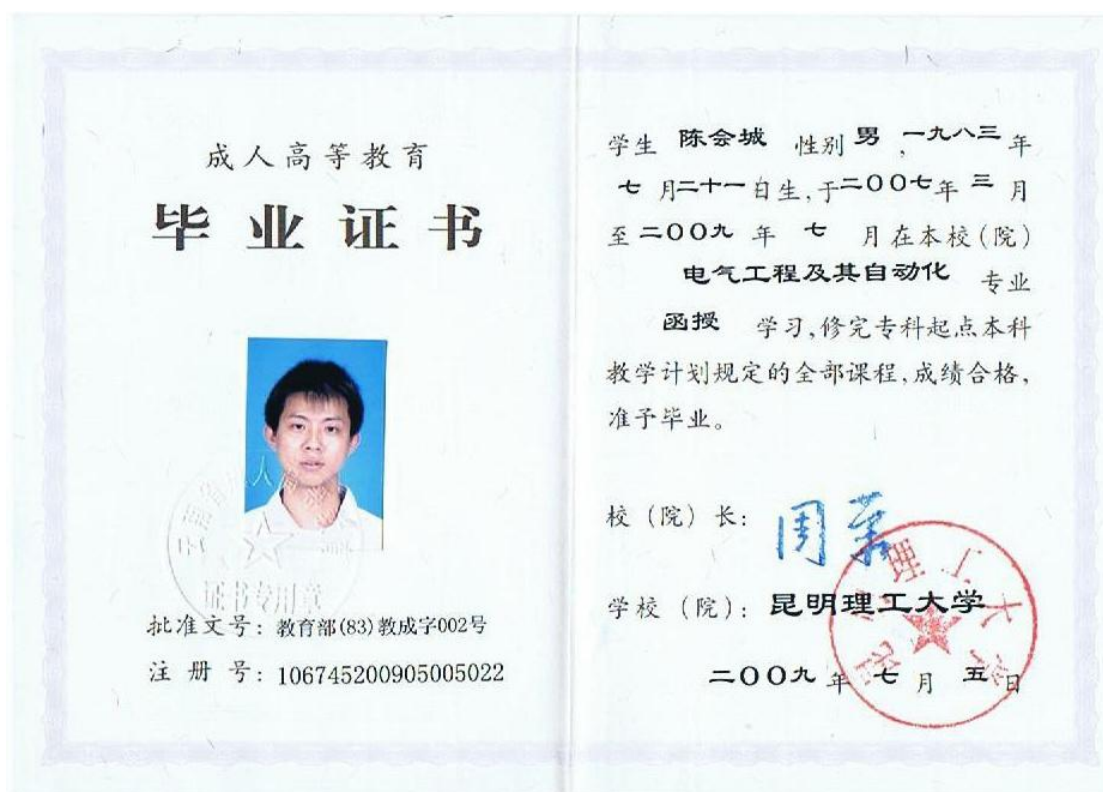 成人高等教育
毕业证书
证书专用章
批准文号：教育部(83)教成字002号
注 册 号：106745200905005022
学生 陈会城 性别 男，一九八三年
七 月二十一日生，于二〇〇七年 三 月
至二〇〇九 年 七 月在本校（院）
电气工程及其自动化 专业
函授 学习，修完专科起点本科
教学计划规定的全部课程，成绩合格，
准予毕业。
校（院）长：周荣
学校（院）：昆明理工大学
昆明理工大学
二〇〇九 年 七 月 五 日